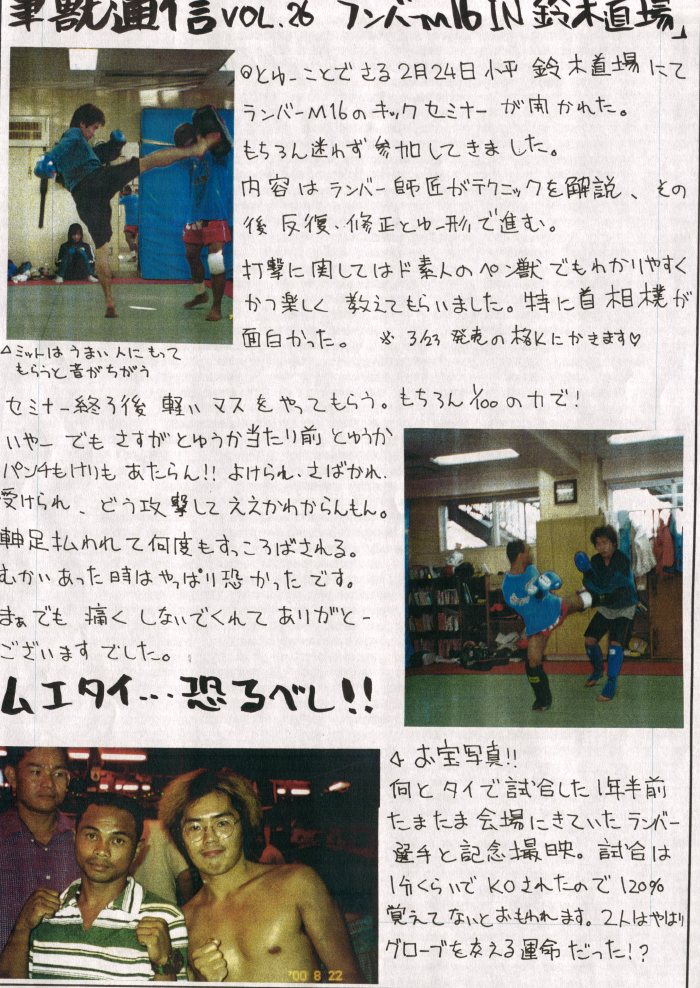 筆獣通信VOL.26 ランバーM16 IN 鈴木道場」
◎とゆーことでさる2月24日小平 鈴木道場にて
ランバーM16のキックセミナーが開かれた。
もちろん迷わず参加してきました。
内容はランバー師匠がテクニックを解説、その
後反復、修正とゆー形で進む。
打撃に関してはド素人のペン獣でもわかりやすく
かつ楽しく 教えてもらいました。特に首相撲が
面白かった。 ※ 3/23 発売の格Kにかきます♡
△ミットはうまい人にもって
もらうと音がちがう
セミナー終了後 軽いマスをやってもらう。もちろん1/100の力で!
いやー でも さすがとゆうか当たり前とゆうか
パンチもけりもあたらん!! よけられ、さばかれ、
受けられ、どう攻撃してええかわからんもん。
軸足払われて何度もすっころばされる。
むかいあった時はやっぱり恐かったです。
まぁでも 痛くしないでくれてありがとー
ございますでした。
ムエタイ…恐るべし!!
△ お宝写真!!
何とタイで試合した1年半前
たまたま会場にきていたランバー
選手と記念撮映。試合は
1分くらいでKOされたので120%
覚えてないとおもわれます。2人はやはり
グローブを交える運命だった!?
'00 8 22